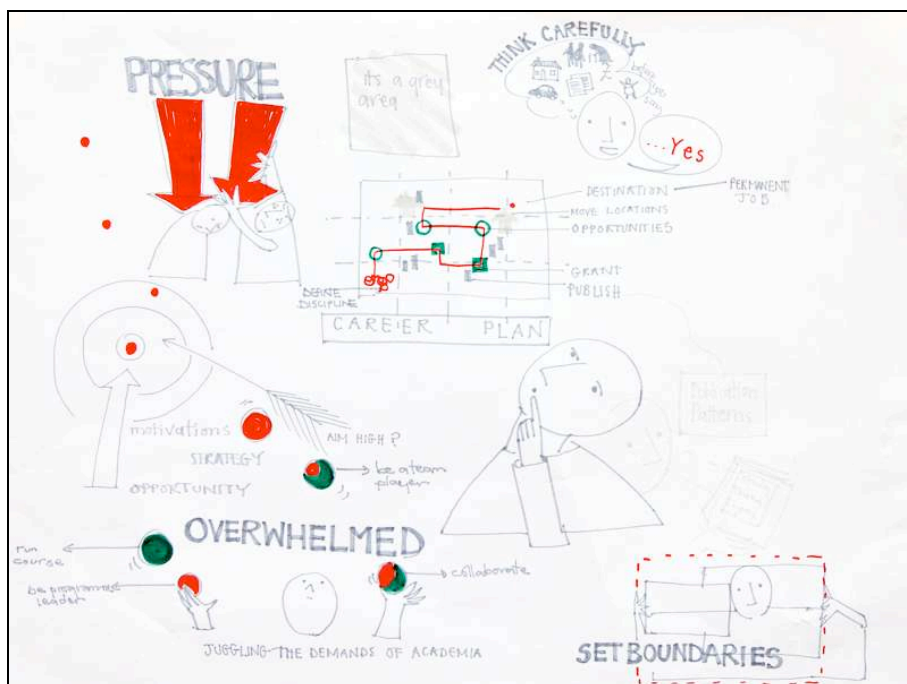 PRESSURE
its a grey
area
THINK CAREFULLY
before
you
say
...Yes
DESTINATION
PERMANENT
JOB
MOVE LOCATIONS
OPPORTUNITIES
GRANT
PUBLISH
DEFINE
DISCIPLINE
CAREER PLAN
motivations
STRATEGY
OPPORTUNITY
AIM HIGH?
be a team
player
Publication
Patterns
OVERWHELMED
run
course
be programme
leader
collaborate
JUGGLING THE DEMANDS OF ACADEMIA
SET BOUNDARIES